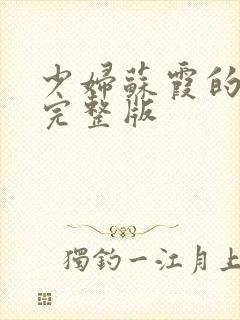 少婦蘇霞的
完整版
獨釣一江月上